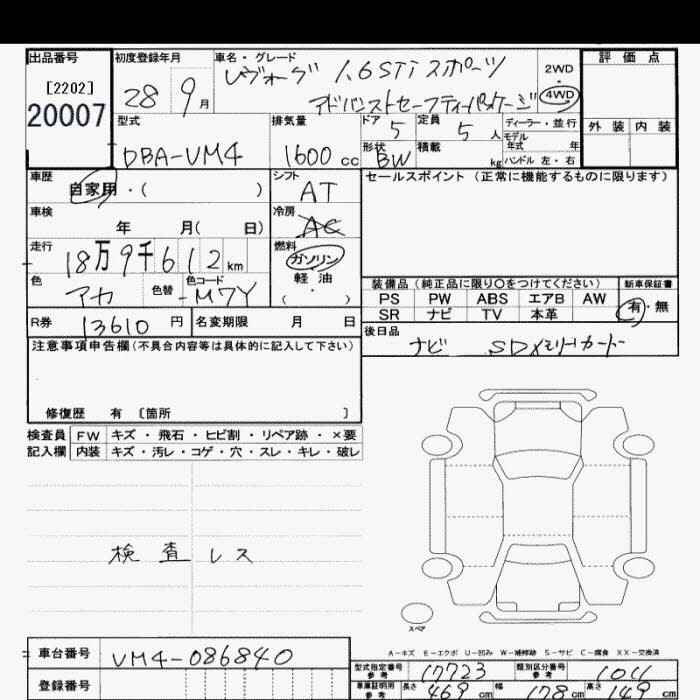 出品番号 初度登録年月 車名・グレード 評価点
[2202] 28 9月 レヴォーグ 1.6STi スポーツ 2WD
20007 アドバンストセーフティパッケージ 4WD
型式 排気量 ドア 5 定員 5 人 ディーラー・並行 外装 内装
モデル年式 年
DBA-VM4 1600 cc 形状 BW 積載 kg ハンドル 左・右
車歴 シフト セールスポイント (正常に機能するものに限ります)
自家用・( ) AT
車検 冷房
年 月( 日) AC
走行 燃料
18万9千612 km ガソリン
色 色替 色コード 軽油
アカ M7Y ( ・ )
装備品 (純正品に限り○をつけてください) 新車保証書
PS PW ABS エアB AW 有・無
SR ナビ TV 本革
R券 13610 円 名変期限 月 日
後日品
ナビ SDメモリーカード
注意事項申告欄(不具合内容等は具体的に記入して下さい)
修復歴 有 〔箇所 〕
検査員 FW キズ・飛石・ヒビ割・リペア跡・×要
記入欄 内装 キズ・汚レ・コゲ・穴・スレ・キレ・破レ
検査レス
スペア
A-キズ E-エクボ U-凹み W-補修跡 S-サビ C-腐食 XX-交換済
車台番号 VM4-086840
登録番号
型式指定番号 参考 17723 類別区分番号 参考 1011
車庫証明用 参考 長さ 469 cm 幅 178 cm 高さ 149 cm